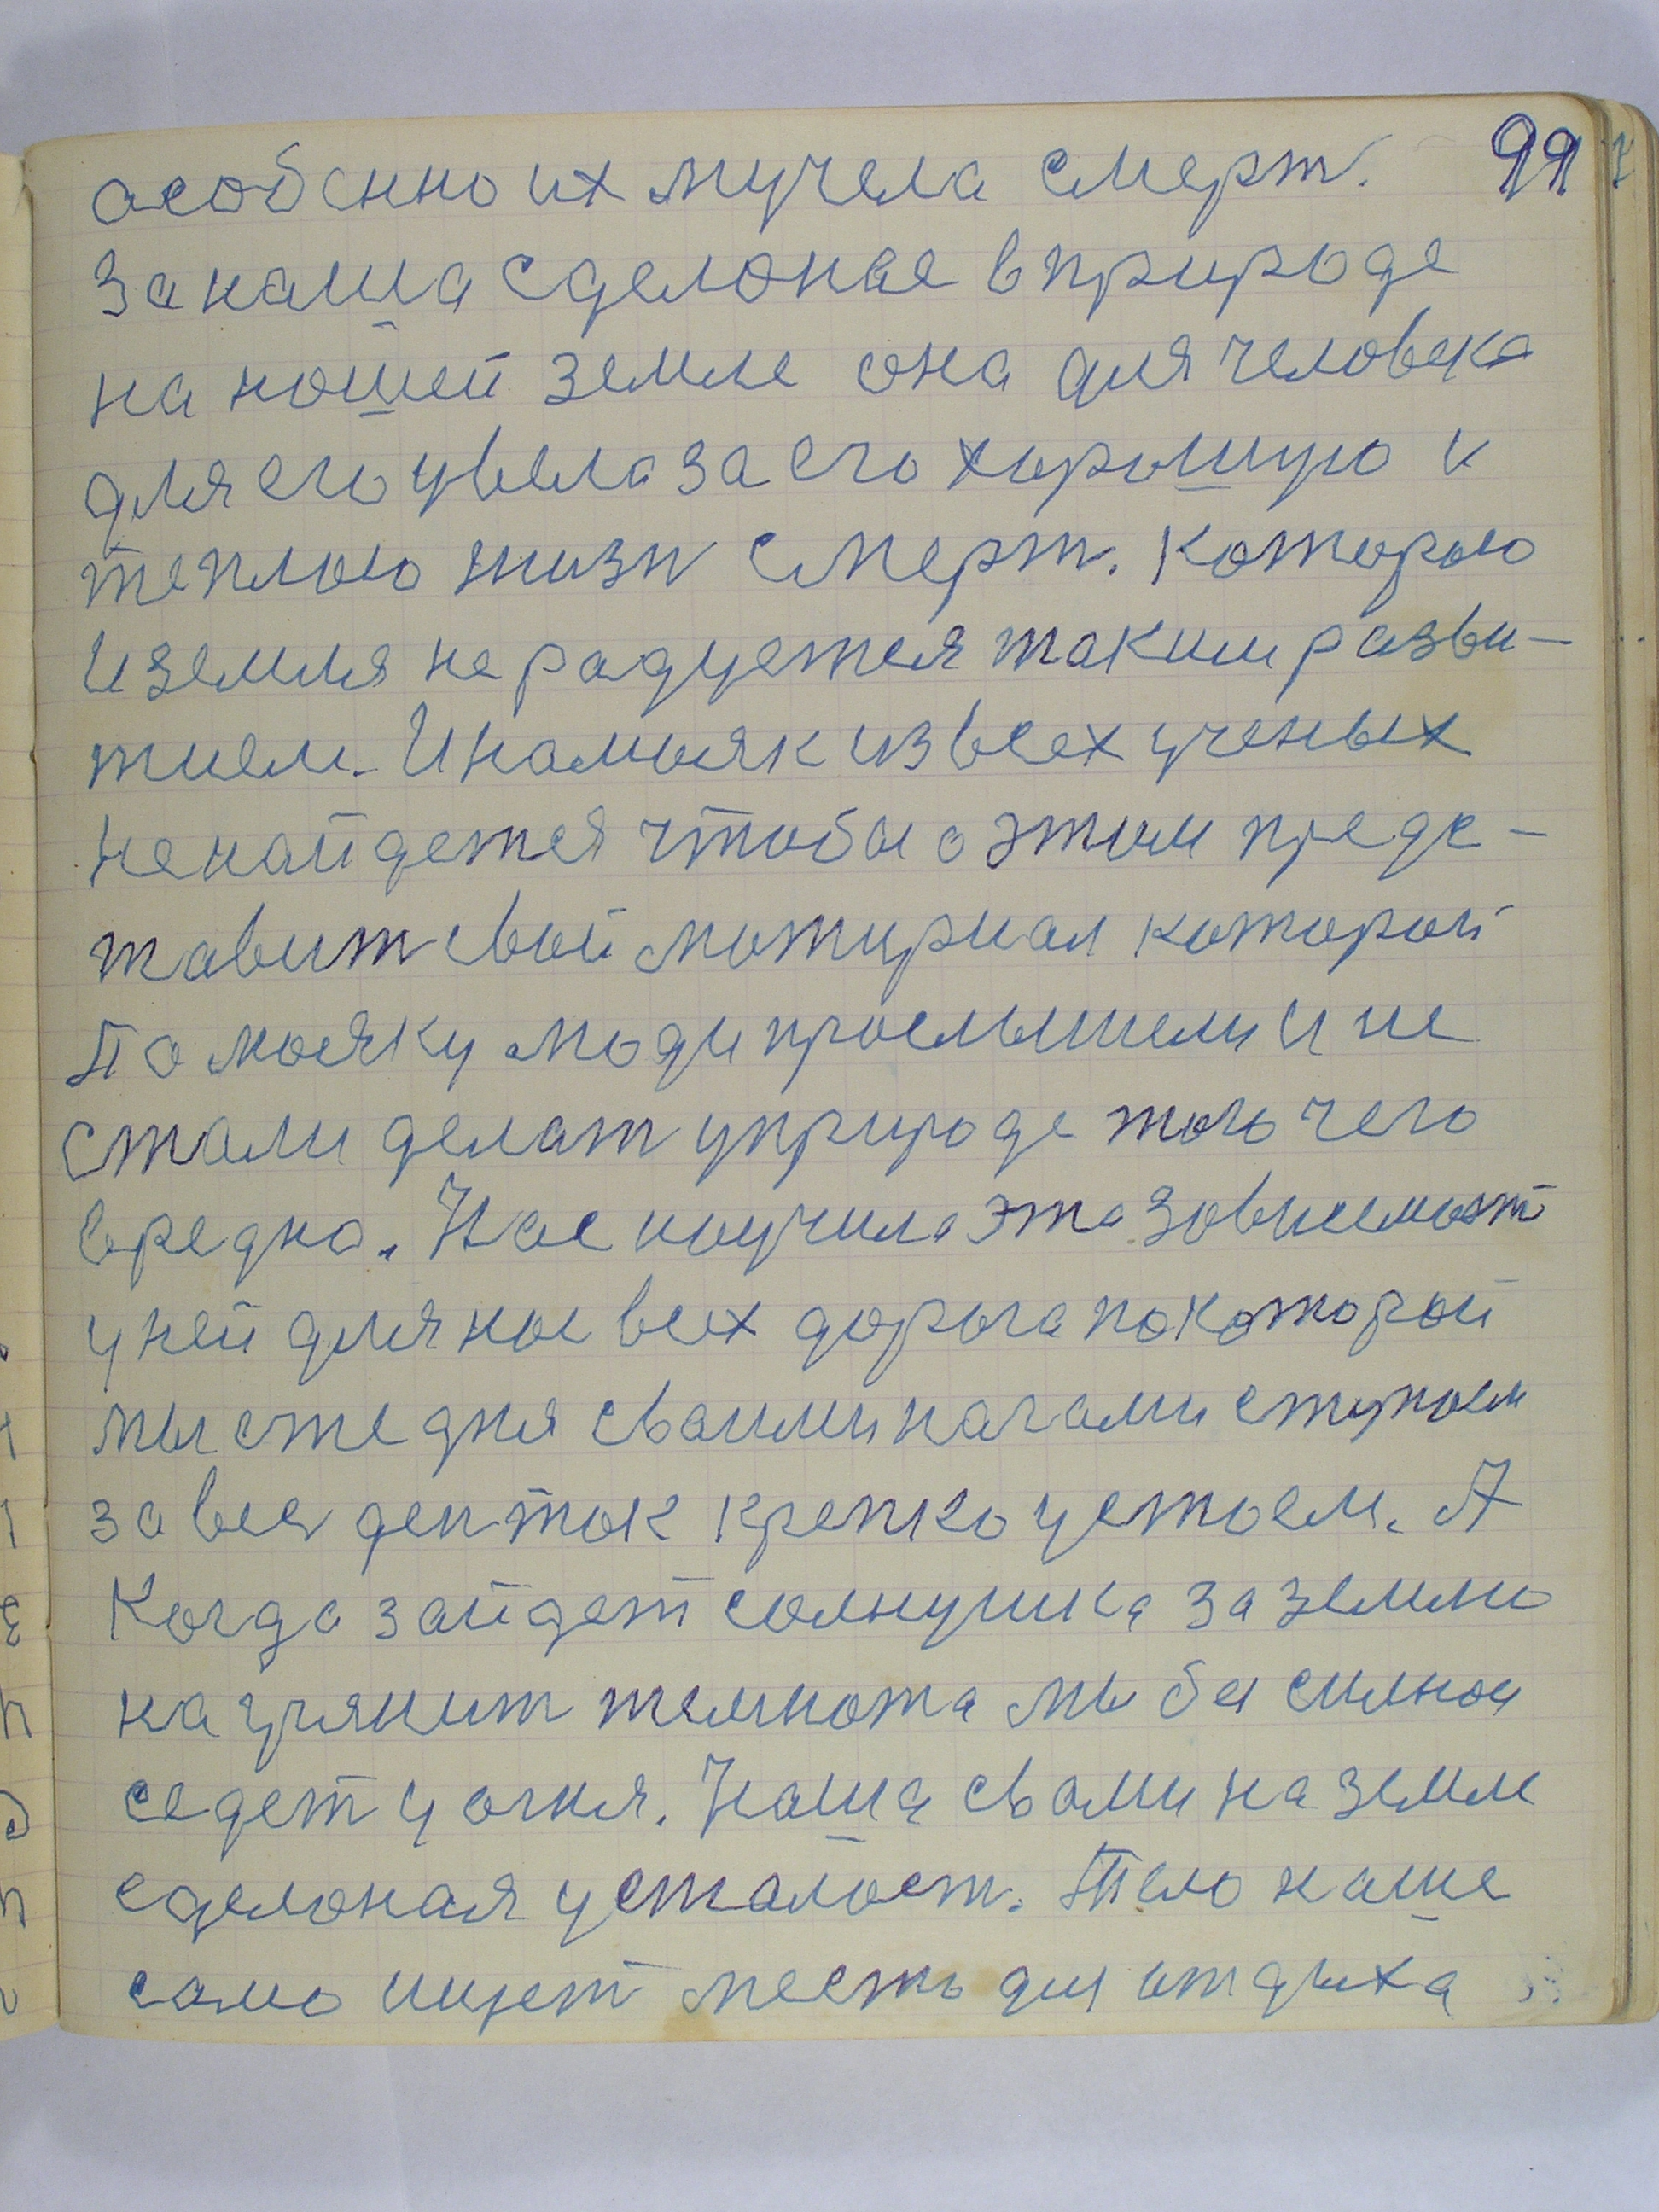 99
особенно их мучела смерт.
За наша сделоное в природе
на ношей земле она для человека
для его увела за его хорошую и
теплою жизн смерт. Которою
и земля не радуется таким разви-
тием. И на маяк из всех ученых
не найдется чтобы о этим предс-
тавит свой мотириал которой
По мояку люди прослышели и не
стали делат у природе того чего
вредно. Нас научила эта зовисемост
у ней для нас всех дорога по которой
мы сегедня своими ногами ступаем
за весь ден так крепко устаем. А
Когда зайдет солнушка за землю
нагрянит темнота мы бы силною
седет у огня. Наша с вами на земле
сделоная усталост. Тело наше
само ищет место для отдыха